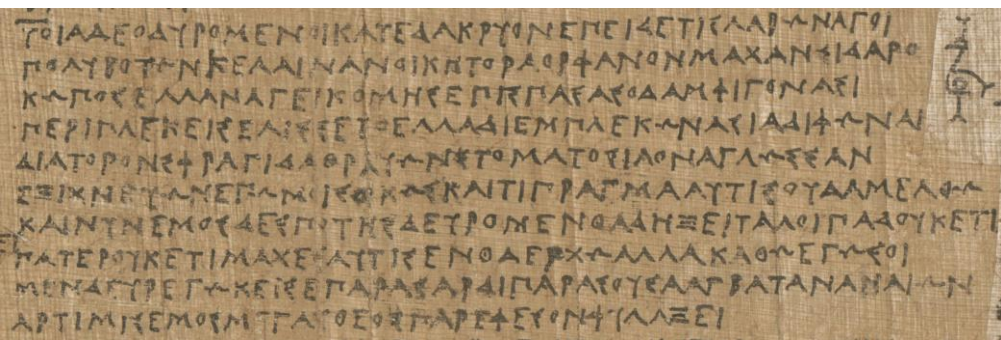 ΤΟΙΑΔΕΟΔΥΡΟΜΕΝΟΙΚΑΤΕΔΑΚΡΥΟΝΕΠΕΙΔΕΤΙΣΛΑΒΩΝΑΓΟΙ
ΠΟΛΥΒΟΤΩΝΚΕΛΑΙΝΑΝΟΙΚΗΤΟΡΑΟΡΦΑΝΟΝΜΑΧΑΝΣΙΔΑΡΟ
ΚΩΠΟΣΕΛΛΑΝΑΓΕΙΚΟΜΗΣΕΠΙΣΠΑΣΑΣΟΔΑΜΦΙΓΟΝΑΣΙ
ΠΕΡΙΠΛΕΚΕΙΣΕΛΙΣΣΕΤΟΕΛΛΑΔΙΕΜΠΛΕΚΩΝΑΣΙΑΔΙΦΩΝΑΙ
ΔΙΑΤΟΡΟΝΣΦΡΑΓΙΔΑΘΡΑΥΩΝΣΤΟΜΑΤΟΣΙΑΟΝΑΓΛΩΣΣΑΝ
ΕΞΙΧΝΕΥΩΝΕΓΩΜΟΙΣΟΙΚΩΣΚΑΙΤΙΠΡΑΓΜΑΑΥΤΙΣΟΥΔΑΜΕΛΘΩ
ΚΑΙΝΥΝΕΜΟΣΔΕΣΠΟΤΗΣΔΕΥΡΟΜΕΝΘΑΔΗΞΕΙΤΑΛΟΙΠΑΔΟΥΚΕΤΙ
ΠΑΤΕΡΟΥΚΕΤΙΜΑΧΕΣΑΥΤΙΣΕΝΘΑΔΕΡΧΩΑΛΛΑΚΑΘΩΕΓΩΣΟΙ
ΜΕΝΔΕΥΡΕΓΩΚΕΙΣΕΠΑΡΑΣΑΡΔΙΠΑΡΑΣΟΥΣΑΑΓΒΑΤΑΝΑΝΑΙΩΝ
ΑΡΤΙΜΙΣΕΜΟΣΜΕΓΑΣΘΕΟΣΠΑΡΕΦΕΣΟΝΦΥΛΑΞΕΙ